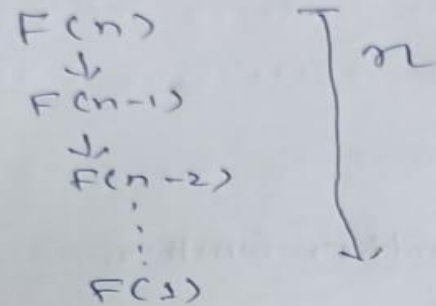 F(n)
↓
F(n-1)
↓
F(n-2)
⋮
F(1)
n